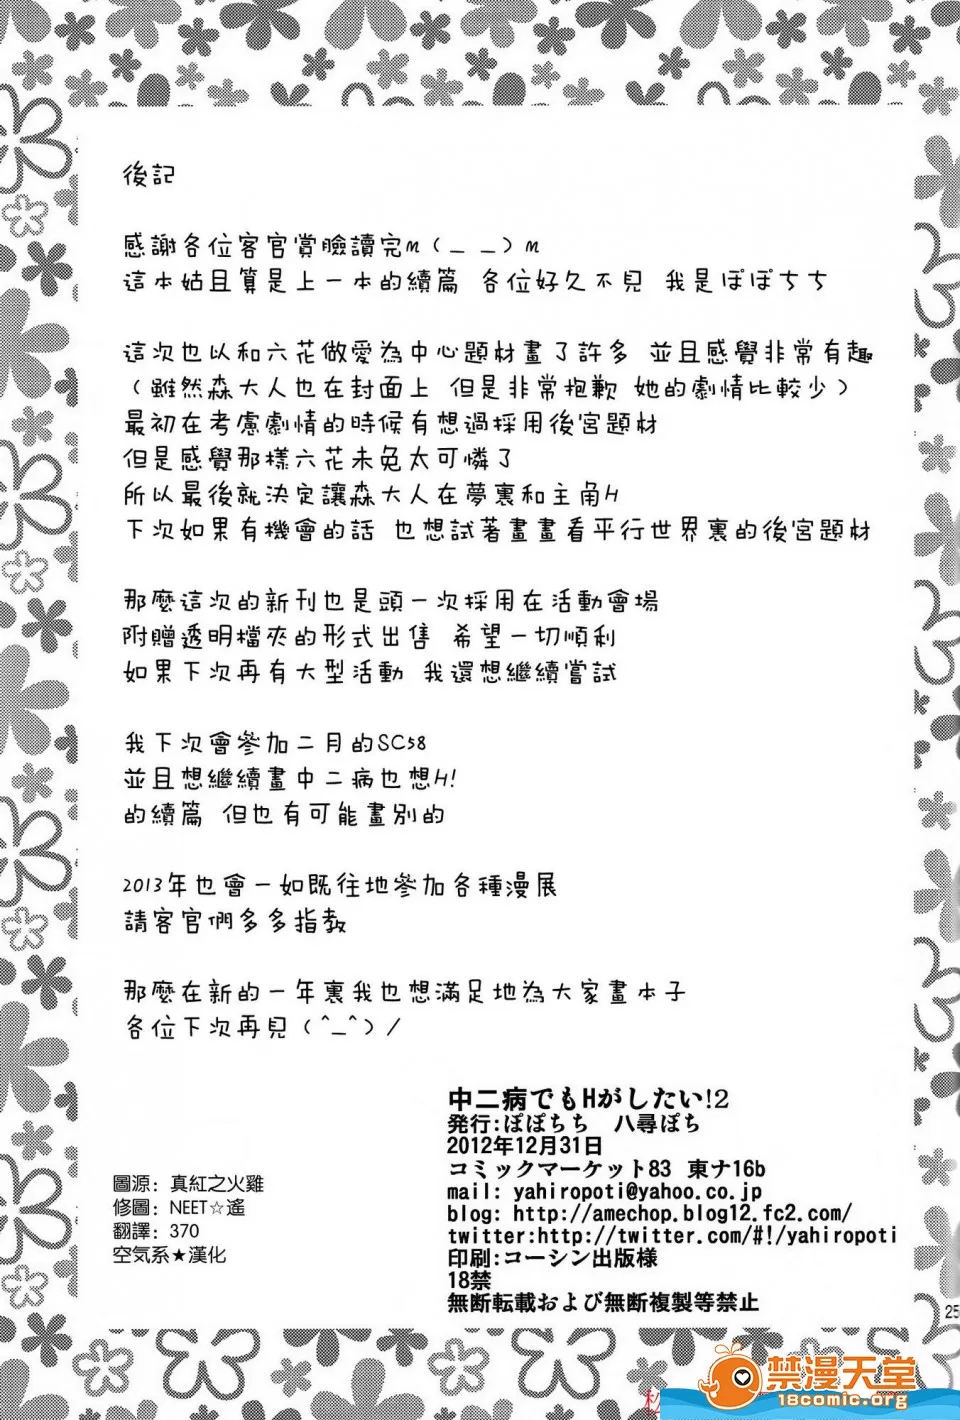 後記
感謝各位客官賞臉讀完m(_ _)m
這本姑且算是上一本的續篇 各位好久不見 我是ぽぽちち
這次也以和六花做愛為中心題材畫了許多 並且感覺非常有趣
(雖然森大人也在封面上 但是非常抱歉 她的劇情比較少)
最初在考慮劇情的時候有想過採用後宮題材
但是感覺那樣六花未免太可憐了
所以最後就決定讓森大人在夢裏和主角H
下次如果有機會的話 也想試著畫畫看平行世界裏的後宮題材
那麼這次的新刊也是頭一次採用在活動會場
附贈透明檔夾的形式出售 希望一切順利
如果下次再有大型活動 我還想繼續嘗試
我下次會參加二月的SC58
並且想繼續畫中二病也想H!
的續篇 但也有可能畫別的
2013年也會一如既往地參加各種漫展
請客官們多多指教
那麼在新的一年裏我也想滿足地為大家畫本子
各位下次再見(^_^)/
中二病でもHがしたい!2
発行:ぽぽちち 八尋ぽち
2012年12月31日
コミックマーケット83 東ナ16b
mail: yahiropoti@yahoo.co.jp
blog: http://amechop.blog12.fc2.com/
twitter:http://twitter.com/#!/yahiropoti
印刷:コーシン出版様
18禁
無断転載および無断複製等禁止
圖源: 真紅之火雞
修圖: NEET☆遙
翻譯: 370
空気系★漢化
25
禁漫天堂
18comic.org